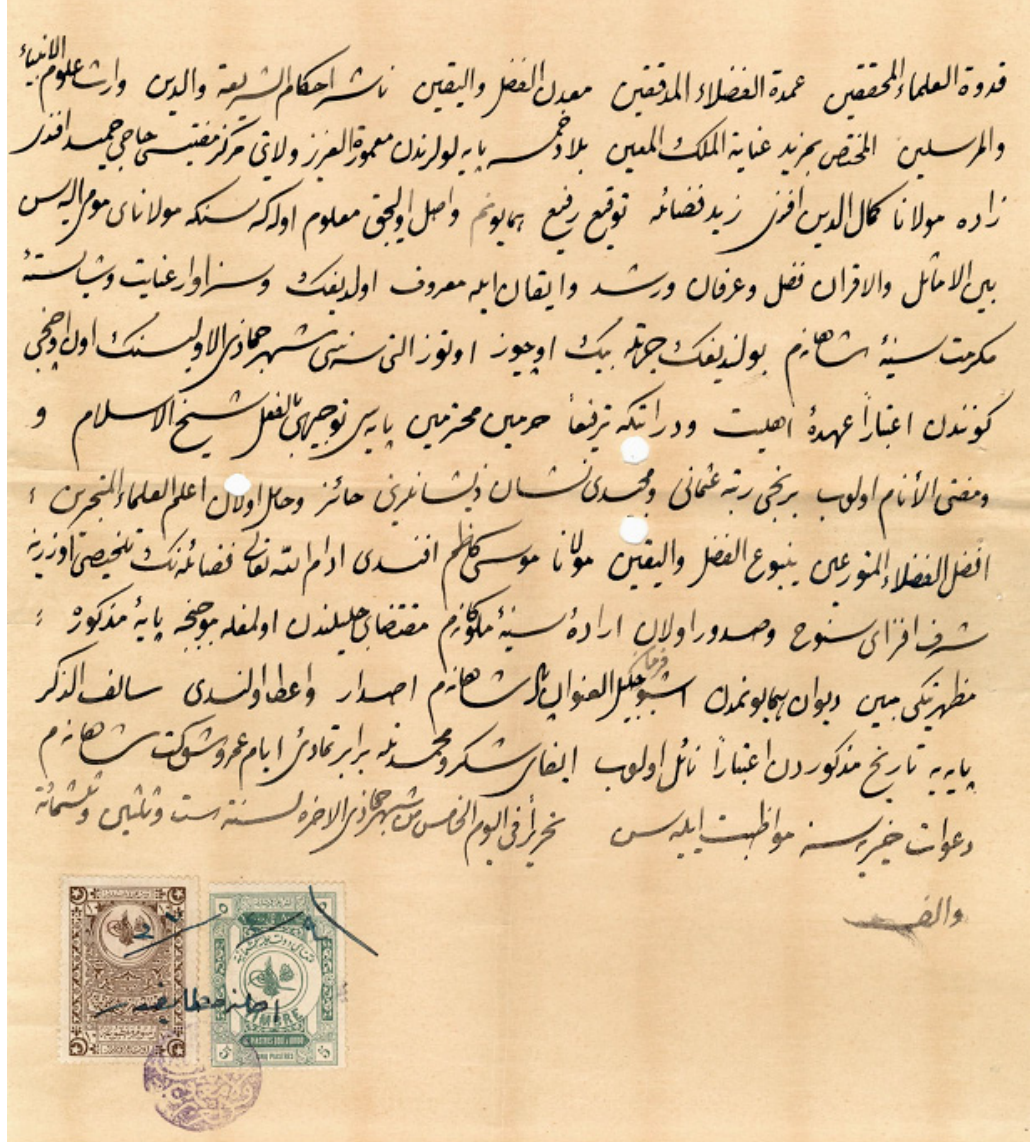 قدوة العلماء المحققين عمدة الفضلاء المدققين معدن الفضل واليقين ناشر احكام الشريعة والدين وارث علوم الانبياء
والمرسلين المختص بمزيد عناية الملك المعين بلاد خمسه پايه لولرندن معمورة العزيز ولايتى مركز مفتيسى حاجى حميد افندى
زاده مولانا كمال الدين افندى زيد فضائله توقيع رفيع همايونم واصل اوليجق معلوم اوله كه سنكه مولاناى مومى اليه سن
بين الاماثل والاقران فضل وعرفان ورشد وايقان ايله معروف اولديغك وسزاوار عنايت وشايسته
مكرمت سنيهٔ شاهانه م بولنديغك جهتله بيك اوچيوز اوتوز التى سنه سى شهر جماذى الاوليسنك اون اوچنجى
كونندن اعتباراً عهدهٔ اهليت ودرايتكه ترفيعاً حرمين محترمين پايه سى توجيهى بالفعل شيخ الاسلام و
ومفتى الأنام اولوب برنجى رتبه عثمانى ومجيدى نشان ذيشانلرينى حائز وحامل اولان اعلم العلماء المتبحرين
افضل الفضلاء المتورعين ينبوع الفضل واليقين مولانا موسى كاظم افندى ادام الله تعالى فضائله نك تلخيصى اوزرينه
شرفافزاى سنوح وصدور اولان ارادهٔ سنيهٔ ملوكانه م مقتضاى جليلندن اولمغله موجبنجه پايهٔ مذكوره
مظهريتكى مبين ديوان همايونمدن اشبو جليل العنوان فرمان شاهانه م اصدار واعطا اولندى سالف الذكر
پايه يه تاريخ مذكوردن اعتباراً نائل اولوب ايفاى شكر ومحمدتله برابر تمادئ ايام عمر وشوكت شاهانه م
دعوات خيريه سنه مواظبت ايليه سن تحريراً فى اليوم الخامس من شهر جماذى الاخره لسنة ست وثلثين وثلثمائة
والف
TIMBRE
CINQ PIASTRES